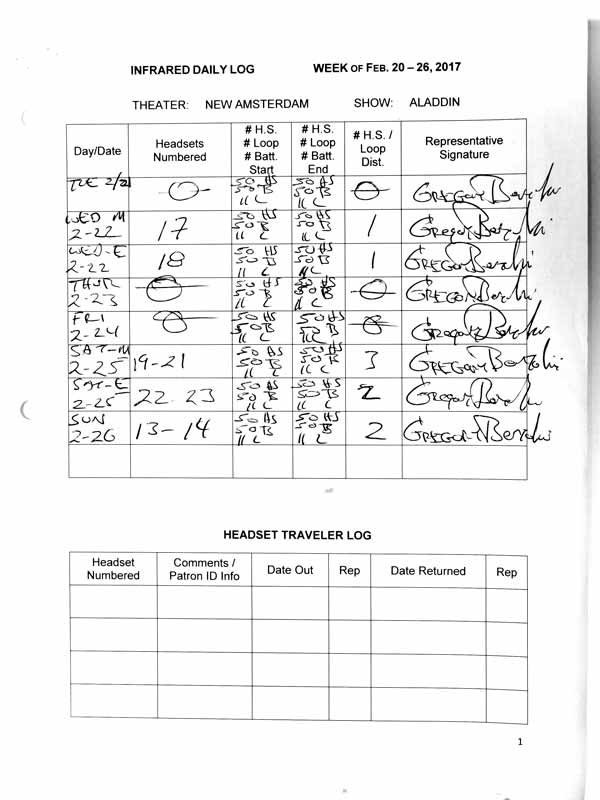 INFRARED DAILY LOG WEEK OF FEB. 20 – 26, 2017
THEATER: NEW AMSTERDAM SHOW: ALADDIN
Day/Date
Headsets
Numbered
# H.S.
# Loop
# Batt.
Start
# H.S.
# Loop
# Batt.
End
# H.S. /
Loop
Dist.
Representative
Signature
TUE 2/21
0
50 HS
50 B
11 C
50 HS
50 B
11 C
0
GREGORY
WED M
2-22
17
50 HS
50 B
11 C
50 HS
50 B
11 C
1
GREGORY
WED-E
2-22
18
50 HS
50 B
11 C
50 HS
50 B
11 C
1
GREGORY
THUR
2-23
0
50 HS
50 B
11 C
50 HS
50 B
11 C
0
GREGORY
FRI
2-24
0
50 HS
50 B
11 C
50 HS
50 B
11 C
0
GREGORY
SAT-M
2-25
19-21
50 HS
50 B
11 C
50 HS
50 B
11 C
3
GREGORY
SAT-E
2-25
22.23
50 HS
50 B
11 C
50 HS
50 B
11 C
2
GREGORY
SUN
2-26
13-14
50 HS
50 B
11 C
50 HS
50 B
11 C
2
GREGORY
HEADSET TRAVELER LOG
Headset
Numbered
Comments /
Patron ID Info
Date Out
Rep
Date Returned
Rep
1